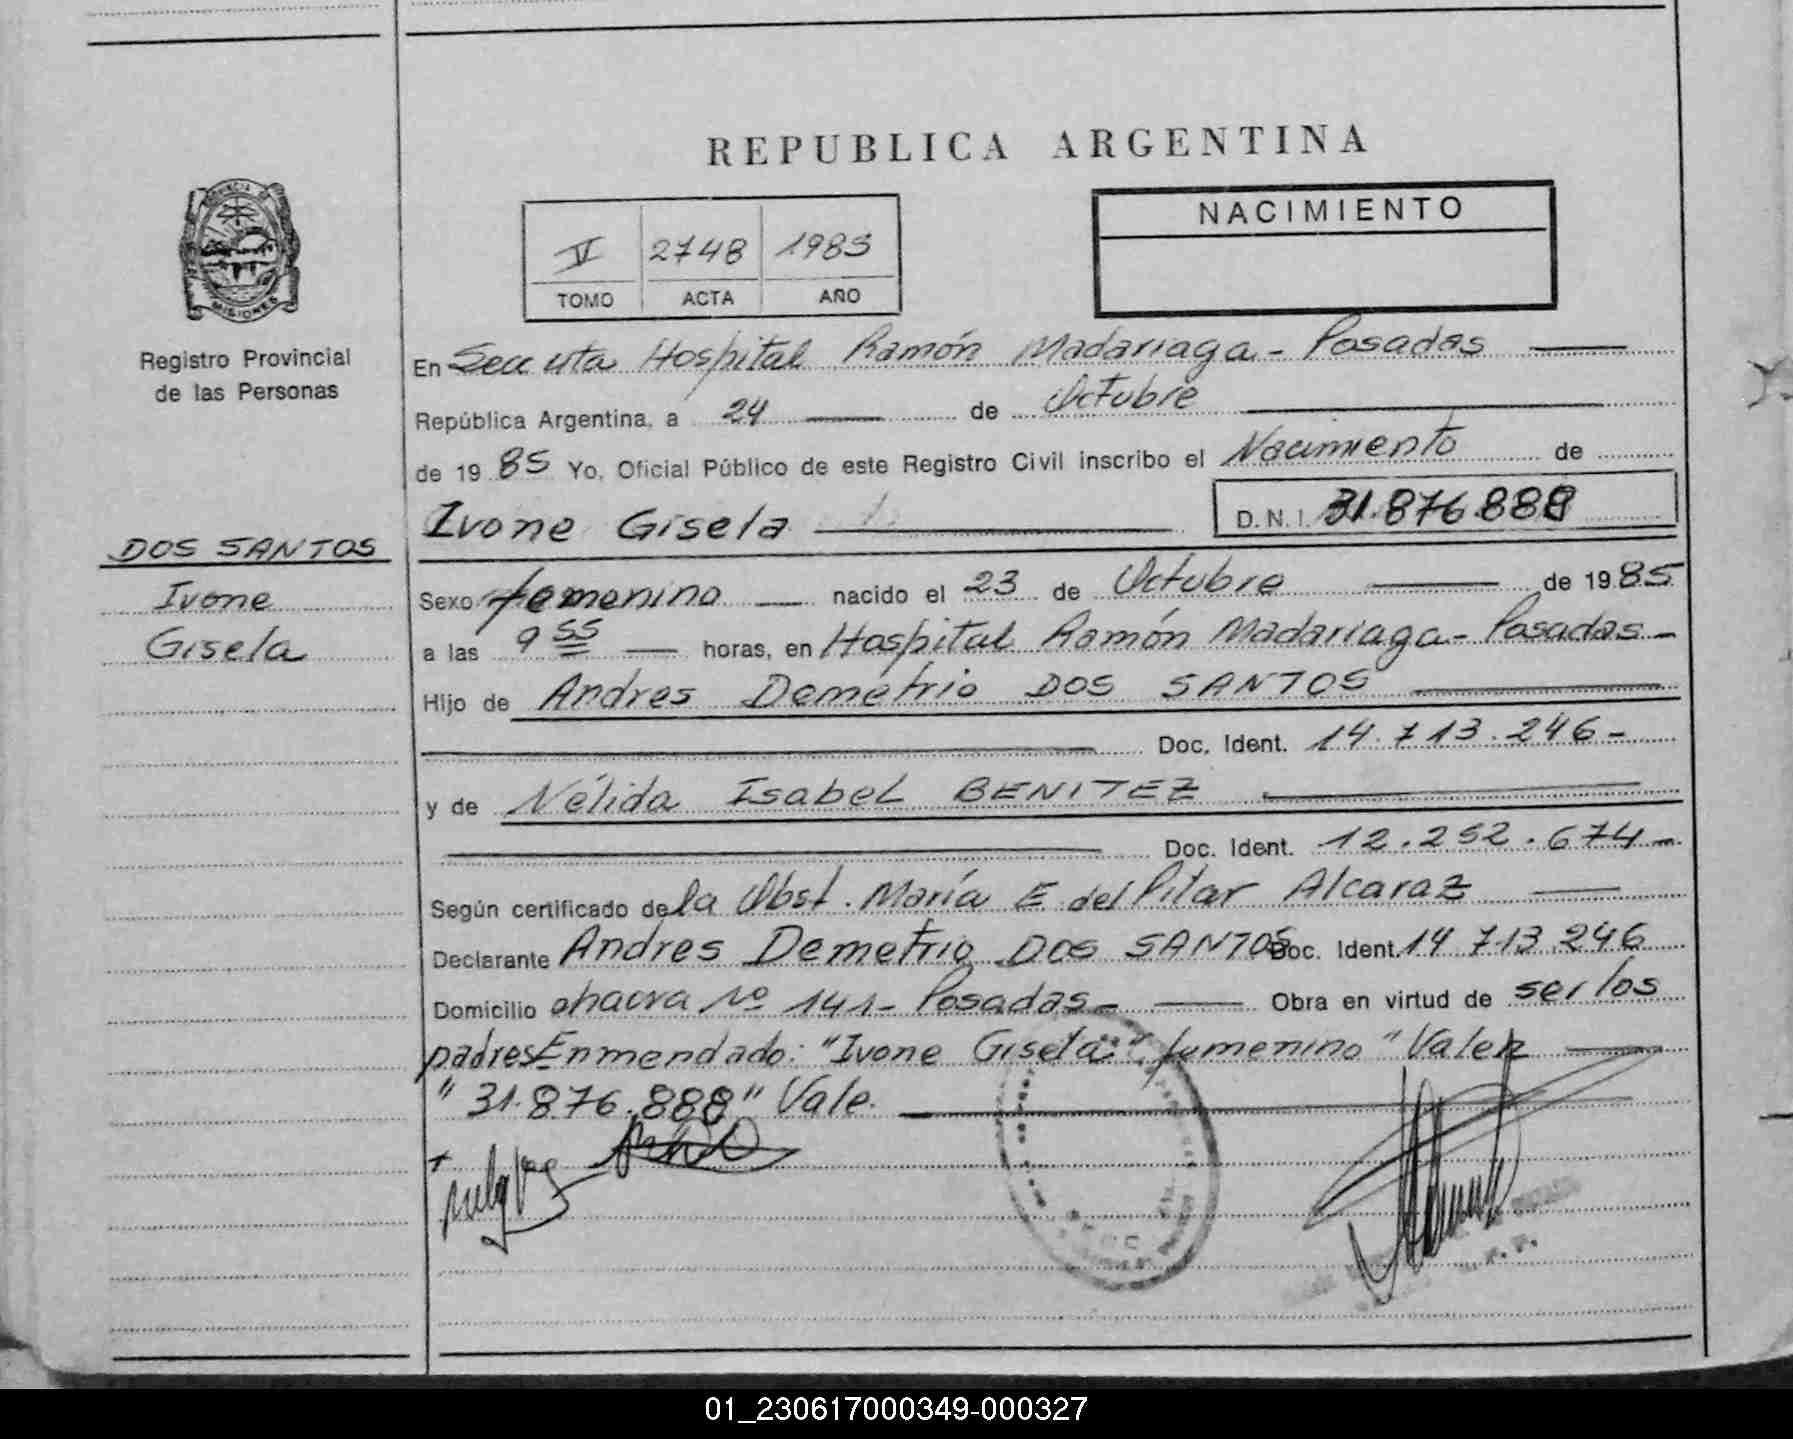 REPUBLICA ARGENTINA
NACIMIENTO
V 2748 1985
TOMO ACTA AÑO
PROVINCIA DE
MISIONES
Registro Provincial
de las Personas
DOS SANTOS
Ivone
Gisela
En Secc uta Hospital Ramón Madariaga - Posadas
República Argentina, a 24 de Octubre
de 1985 Yo, Oficial Público de este Registro Civil inscribo el Nacimiento de
Ivone Gisela D.N.I. 31.876.888
Sexo femenino nacido el 23 de Octubre de 1985
a las 9 55 horas, en Hospital Ramón Madariaga - Posadas -
Hijo de Andres Demetrio DOS SANTOS
Doc. Ident. 14.713.246-
y de Nélida Isabel BENITEZ
Doc. Ident. 12.252.674-
Según certificado de la Obst. María E del Pilar Alcaraz
Declarante Andres Demetrio DOS SANTOS Doc. Ident. 14 713.246
Domicilio chacra Nº 141- Posadas - Obra en virtud de ser los
padres Enmendado: "Ivone Gisela" "femenino" Valen
"31.876.888" Vale.
01_230617000349-000327